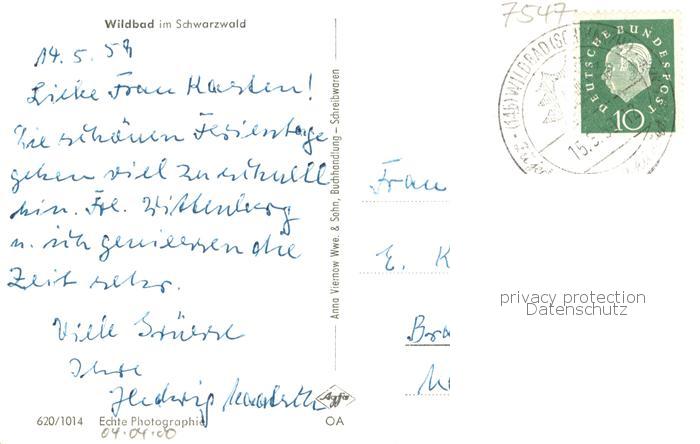 7547
Wildbad im Schwarzwald
14.5.59
Liebe Frau Karsten!
Die schönen Ferientage
gehen viel zu schnell
hin. Frl. Wittenburg
u. ich geniessen die
Zeit sehr.
Viele Grüsse
Ihre
Hedwig
620/1014 Echte Photographie
04.04.00
Agfa
OA
Anna Viernow Wwe. & Sohn, Buchhandlung – Schreibwaren
(14b) WILDBAD (SC
15.5.
DEUTSCHE BUNDESPOST
10
Frau
E. K
Bra
privacy protection
Datenschutz